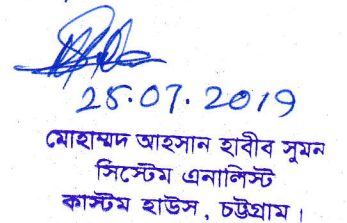 25.07.2019
মোহাম্মদ আহসান হাবীব সুমন
সিস্টেম এনালিস্ট
কাস্টম হাউস, চট্টগ্রাম।